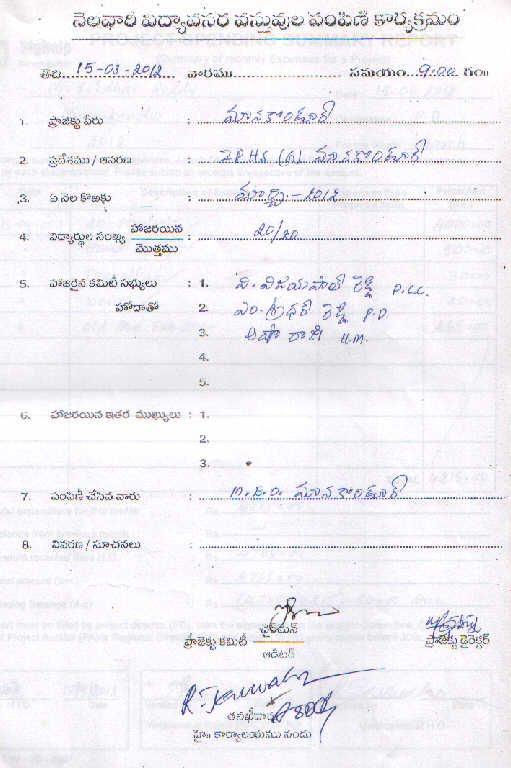 నెలవారి విద్యావసర వస్తువుల పంపిణీ కార్యక్రమం
తేది. 15-03-2012 వారము సమయం 9:00 గం॥
1. ప్రాజెక్టు పేరు : మానకొండూర్
2. ప్రదేశము / ఆవరణ : Z.P.H.S (G) మానకొండూర్
3. ఏ నెల కొఱకు : మార్చి - 2012
4. విద్యార్థుల సంఖ్య హాజరయిన : 20/20
మొత్తము
5. హాజరైన కమిటీ సభ్యులు : 1. వి. విజయపాల్ రెడ్డి P.C.C.
హోదాతో 2. ఎం. శ్రీధర్ రెడ్డి P.D
3. ఆషా రాణి H.M.
4.
5.
6. హాజరయిన ఇతర ముఖ్యులు : 1.
2.
3.
7. పంపిణీ చేసిన వారు : M.E.O. మానకొండూర్
8. వివరణ / సూచనలు :
ప్రాజెక్టు కమిటీ చైర్మన్ ప్రాజెక్టు డైరెక్టర్
ఆడిటర్
తనిఖీదారు
హై॥ కార్యాలయము నందు